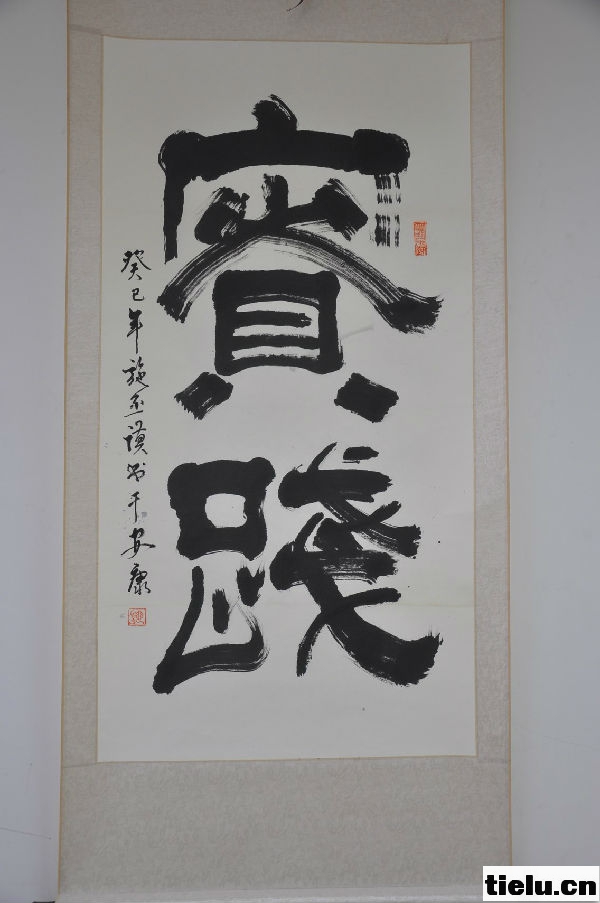 實踐
癸巳年施丕謨书于安康
tielu.cn